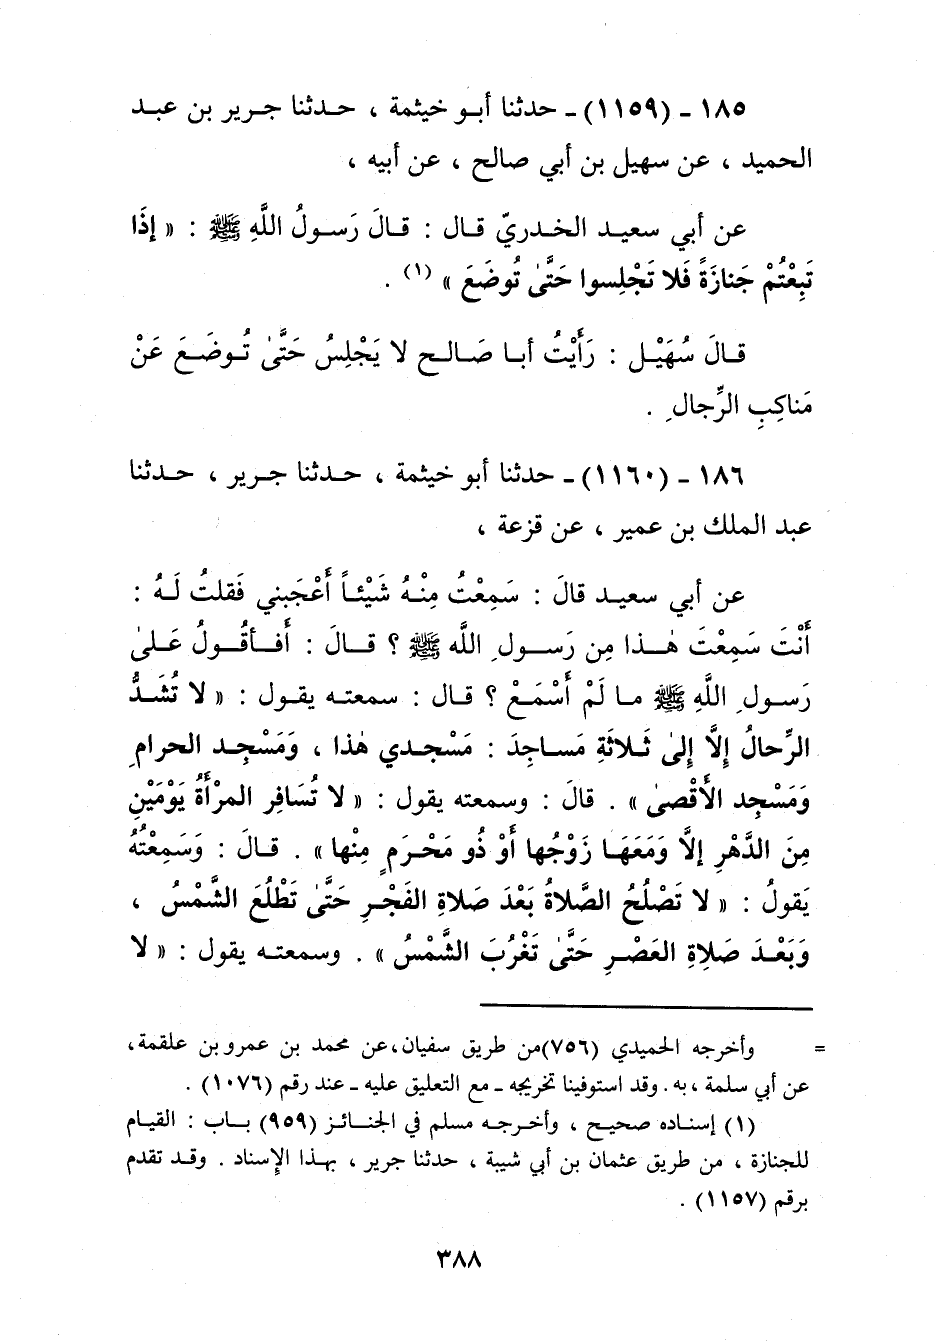 ١٨٥ - (١١٥٩) - حدثنا أبو خيثمة ، حدثنا جرير بن عبد
الحميد ، عن سهيل بن أبي صالح ، عن أبيه ،
عن أبي سعيد الخدريّ قال : قالَ رَسولُ اللَّهِ ﷺ : « إِذَا
تَبِعْتُمْ جَنازَةً فَلا تَجْلِسوا حَتَّىٰ تُوضَعَ » (١) .
قالَ سُهَيْل : رَأَيْتُ أبا صَالح لا يَجْلِسُ حَتَّىٰ تُوضَعَ عَنْ
مَناكِبِ الرِّجالِ .
١٨٦ - (١١٦٠) - حدثنا أبو خيثمة ، حدثنا جرير ، حدثنا
عبد الملك بن عمير ، عن قزعة ،
عن أبي سعيد قالَ : سَمِعْتُ مِنْهُ شَيْئاً أَعْجَبني فَقلتُ لَهُ :
أَنْتَ سَمِعْتَ هٰذا مِن رَسولِ اللَّه ﷺ ؟ قالَ : أَفأقُولُ عَلىٰ
رَسولِ اللَّهِ ﷺ ما لَمْ أَسْمَعْ ؟ قال : سمعته يقول : « لا تُشَدُّ
الرِّحالُ إِلَّا إِلىٰ ثَلاثَةِ مَساجِدَ : مَسْجدي هٰذا ، وَمَسْجِد الحرامِ
وَمَسْجِد الأَقْصىٰ » . قالَ : وسمعته يقول : « لا تُسَافِر المرْأَةُ يَوْمَيْنِ
مِنَ الدَّهْرِ إلَّا وَمَعَهَا زَوْجُها أَوْ ذُو مَحْرَمٍ مِنْها » . قالَ : وَسَمِعْتُهُ
يَقولُ : « لا تَصْلُحُ الصَّلاةُ بَعْدَ صَلاةِ الفَجْرِ حَتَّىٰ تَطْلُعَ الشَّمْسُ ،
وَبَعْدَ صَلاةِ العَصْرِ حَتَّىٰ تَغْرُبَ الشَّمْسُ » . وسمعته يقول : « لا
= وأخرجه الحميدي (٧٥٦)من طريق سفيان،عن محمد بن عمرو بن علقمة،
عن أبي سلمة ، به . وقد استوفينا تخريجه - مع التعليق عليه - عند رقم (١٠٧٦) .
(١) إسناده صحيح ، وأخرجه مسلم في الجنائز (٩٥٩) باب : القيام
للجنازة ، من طريق عثمان بن أبي شيبة ، حدثنا جرير ، بهذا الإسناد . وقد تقدم
برقم (١١٥٧) .
٣٨٨